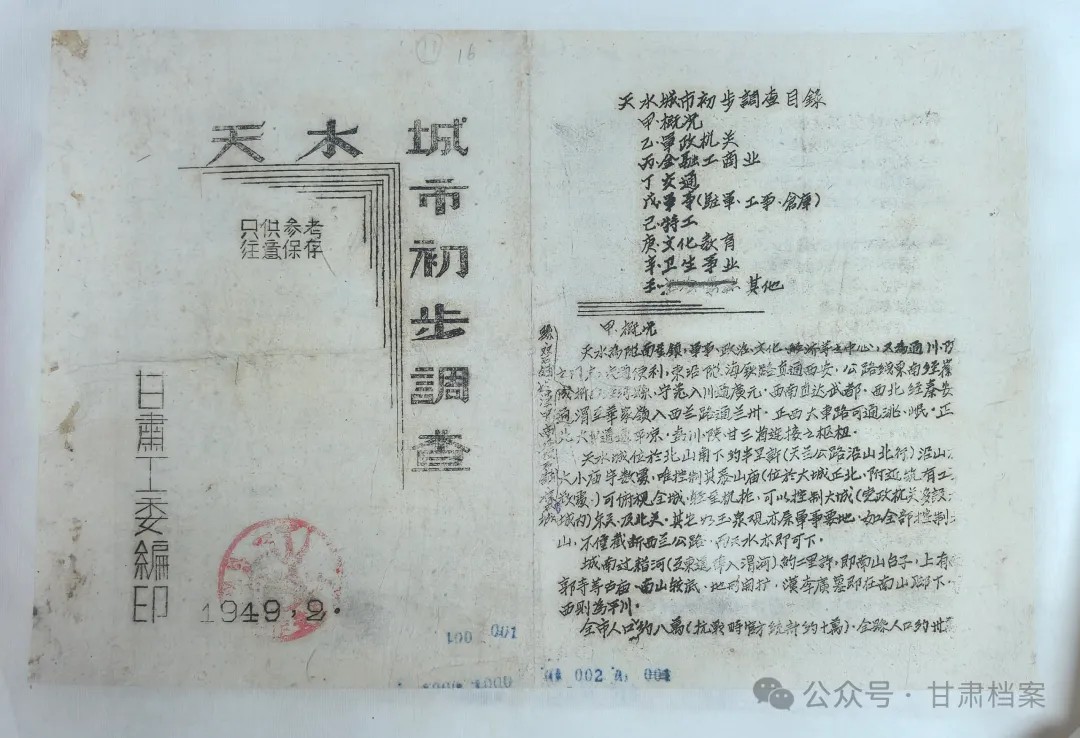 11 16
天水城市初步調查
只供参考
注意保存
甘肅工委編印
1949.2.
100 001
天水城市初步調查目錄
甲·概况
乙·軍政机关
丙·金融工商业
丁·交通
戊·軍事(駐軍·工事·倉庫)
己·特工
庚·文化教育
辛·卫生事业
壬· 其他
甲·概况
天水為陇南重鎮,軍事·政治·文化·經济等之中心,又為通川
交通便利,東沿陇海铁路直通西安,公路线東南經
入川通廣元,西南直达武都,西北經秦安
通渭至華家嶺入西兰路通兰州,正西大車路可通洮·岷,正
北大 為川·陕·甘三省連接之枢杻。
天水城位於北山南下約半里許(天兰公路沿山北行)沿山
大小庙宇数處,唯控制其泰山庙(位於大城正北,附近筑有工
)可俯視全城, 可以控制大城(党政机关多設
城内)东关·及北关,其它如玉泉观亦屬軍事要地,如全部控制
山,不僅截断西兰公路, 水亦即可下。
城南过耤河(至東進 入渭河)約二里許,即南山台子,上有
郭寺等古庙,南山較底,地形開扩,漢李廣墓即在南山脚下,
西則為平川。
全市人口約八萬(抗戰時官方統計約十萬),全縣人口約卅
002 001
公众号·甘肃档案